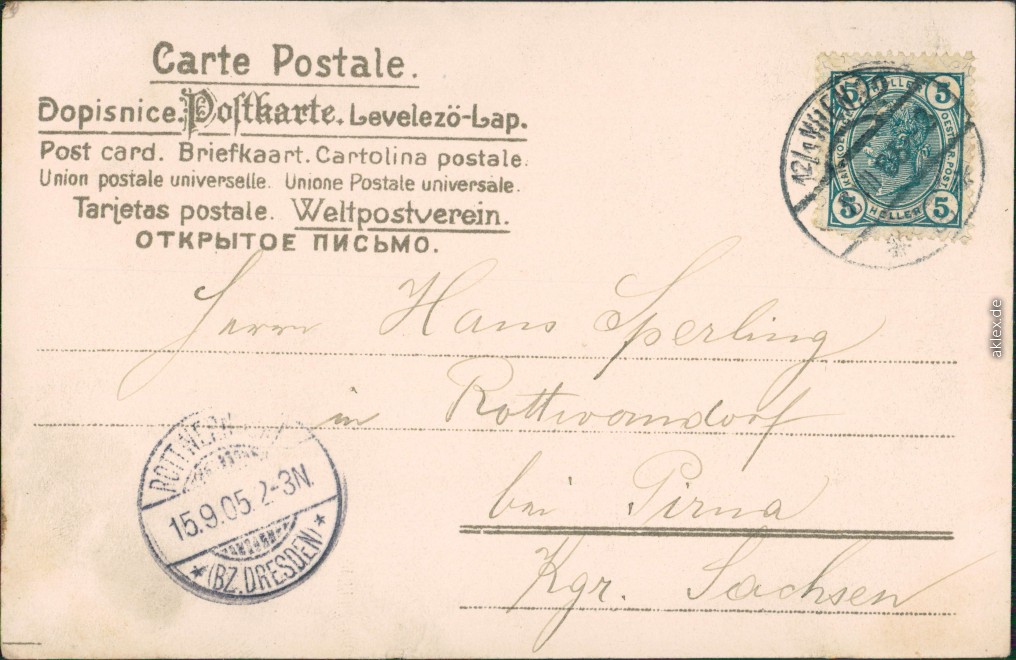 Carte Postale.
Dopisnice. Postkarte. Levelezö-Lap.
Post card. Briefkaart. Cartolina postale.
Union postale universelle. Unione Postale universale.
Tarjetas postale. Weltpostverein.
ОТКРЫТОЕ ПИСЬМО.
12/1 WIEN
5 HELLER 5
5 HELLER 5
Herrn Hans Sperling
in Rottwerndorf
bei Pirna
Kgr. Sachsen
15.9.05. 2-3N.
* (BZ. DRESDEN) *
aklex.de